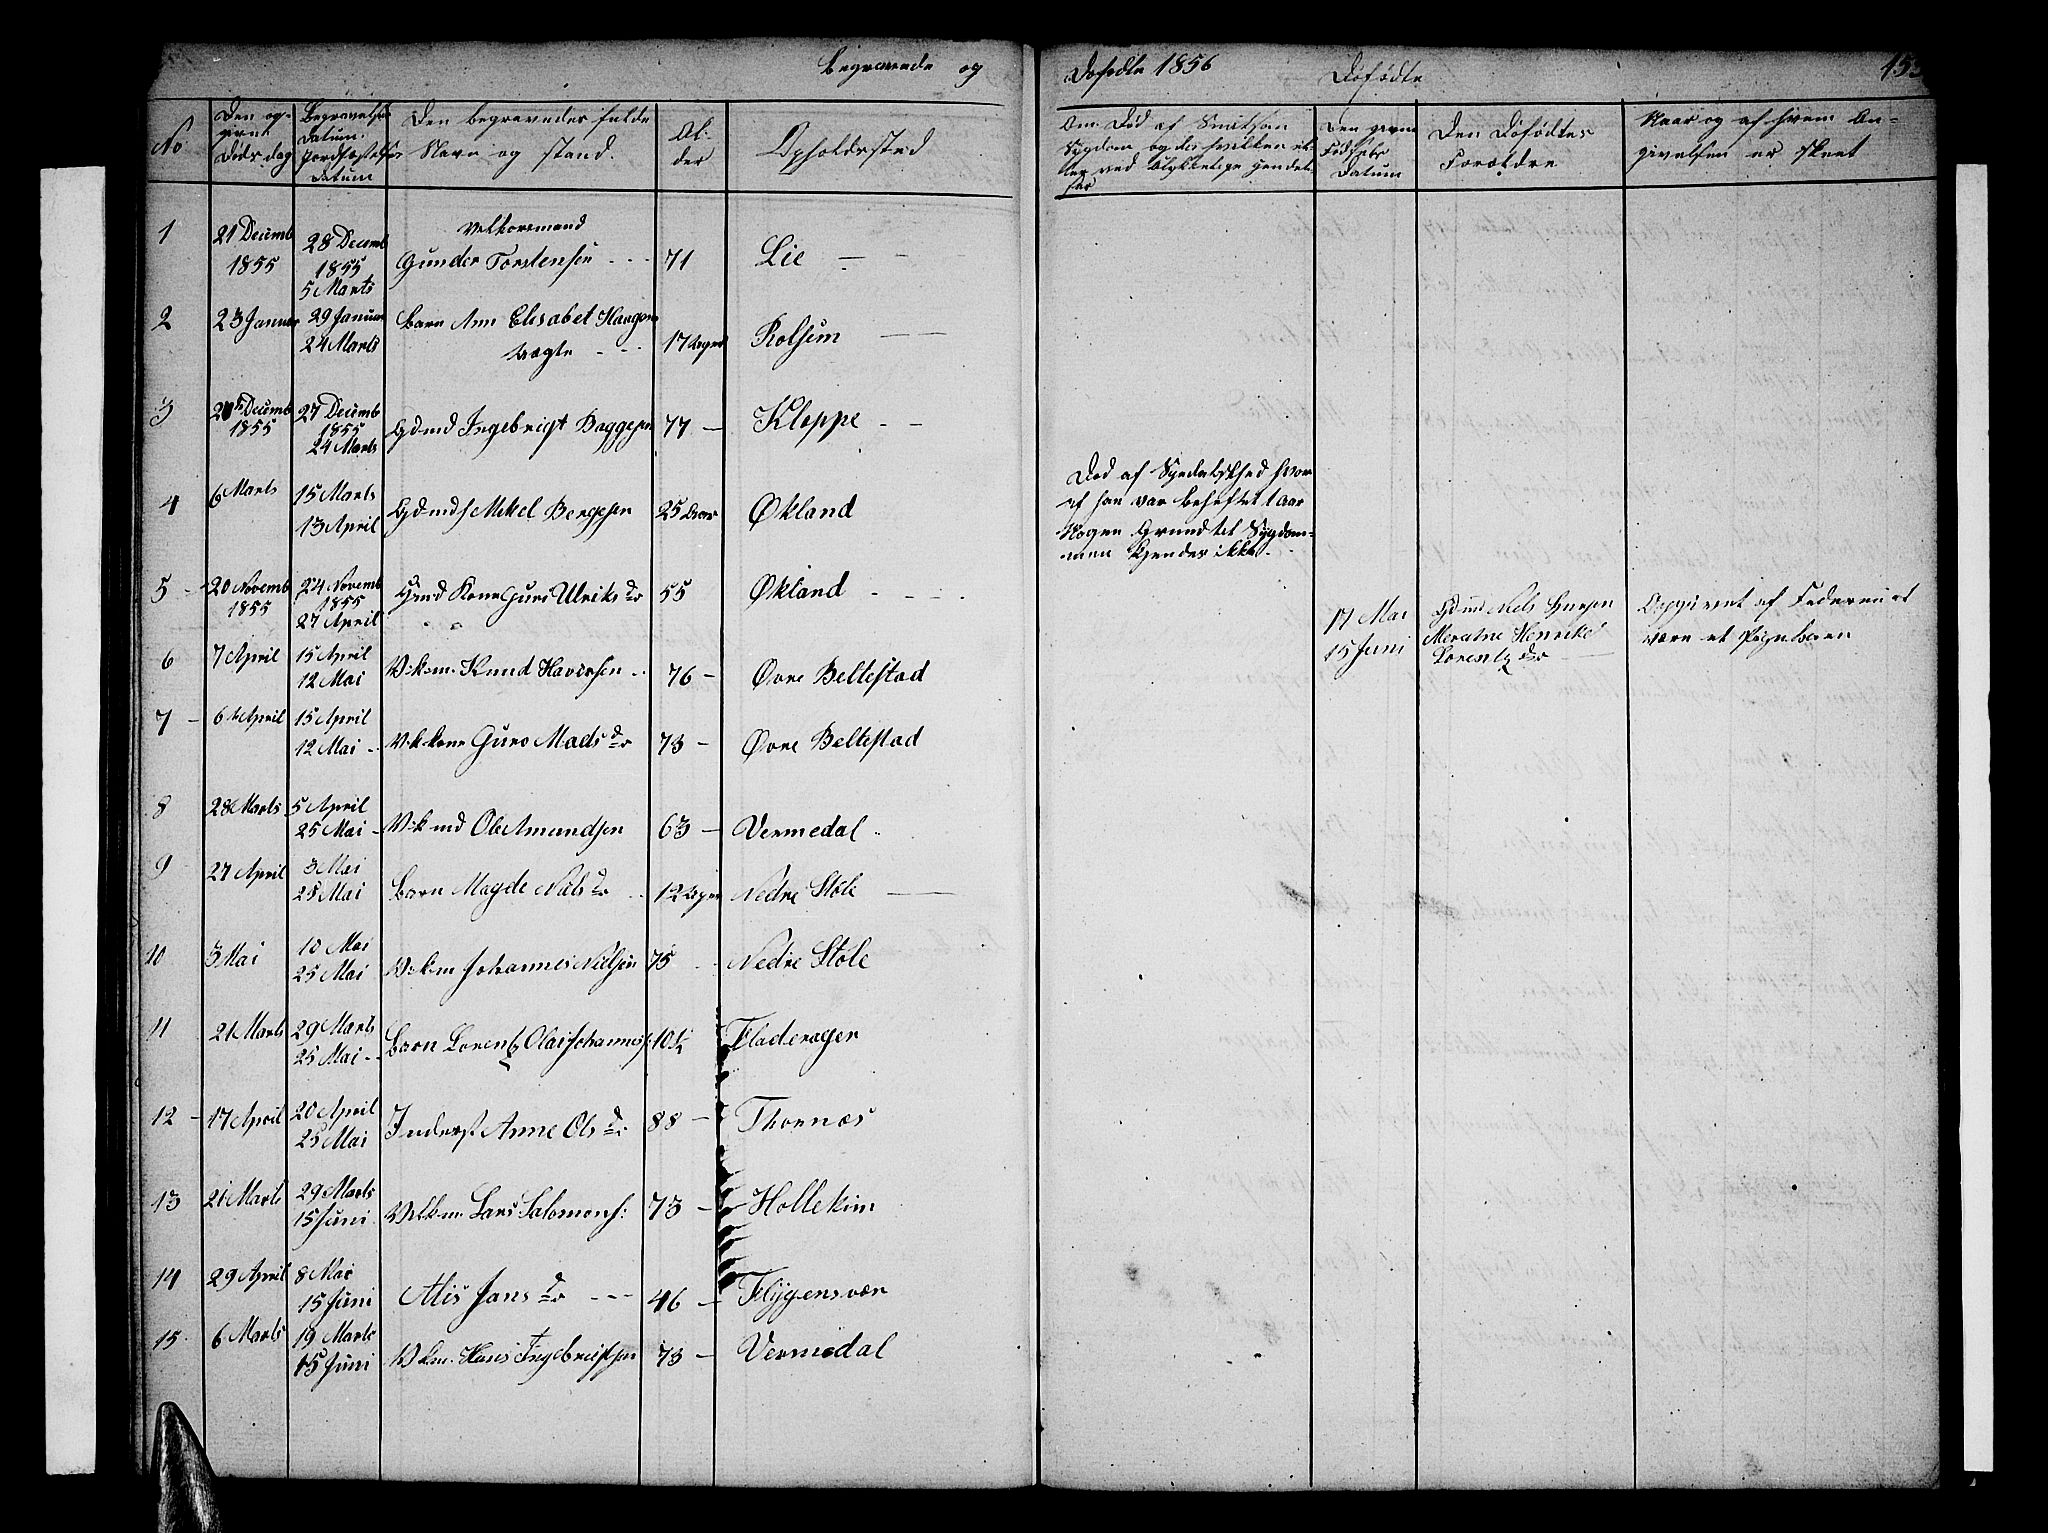 Begravede og Dødfødte 1856 Dødfødte 155
No
Den opgivne Døds dag
Begravelses Datum. Jordfæstelses Datum
Den begravedes fulde Navn og stand.
Alder
Opholdssted
Om Død af Smitsom Sygdom og da hvilken eller ved Ulykkelige Hendelser
Den givne Fødsels Datum
Den Dødfødtes Forældre
Naar og af hvem Angivelsen er skeet
1 21 Decemb 1855 28 Decemb 1855 5 Marts Velkorsmand Gunder Torstensen 71 Lie
2 23 Januar 29 Januar 24 Marts Barn Ann Elisabet Haagens Vægte 17 Uger Rolsem
3 Decemb 1855 27 Decemb 1855 24 Marts Gdmd Ingebrigt Baggesen 77 Kleppe
4 6 Marts 15 Marts 13 April Gdmds Mikel Bergesen 25 Aar Økland Død af Spedalskhed hvoraf han var behæftet 1 Aar Nogen Grund til Sygdommen kjendes ikke.
5 20 Novemb 1855 24 Novemb 1855 27 April Gmd Kone Guro Ulriks dr 55 Økland
17 Mai 15 Juni Gdmd Niels Hansen Merethe Henrikke Lorentz dr Opgivent af Faderen at være et Pigebarn
6 7 April 15 April 12 Mai V.k.m. Knud Haversen 76 Øvre Beltestad
7 6 April 15 April 12 Mai V.k.kone Guro Mads dr 73 Øvre Beltestad
8 28 Marts 5 April 25 Mai V.k.md Ole Amundsen 63 Vermedal
9 27 April 3 Mai 25 Mai Barn Magde Niels dr 12 Uger Nedre Støle
10 3 Mai 10 Mai 25 Mai V.k.m Johannes Nielsen 75 Nedre Støle
11 21 Marts 29 Marts 25 Mai Barn Lorentz Olai Johannes 10 ½ Fladerager
12 17 April 20 April 25 Mai Inderst Anne Ols dr 88 Thornæs
13 21 Marts 29 Marts 15 Juni Velk.m. Lars Salomons: 73 Hollekim
14 29 April 8 Mai 15 Juni Alis Jans dr 46 Flygensvær
15 6 Marts 19 Marts 15 Juni V.k.m. Hans Ingebrigtsen 73 Vermedal